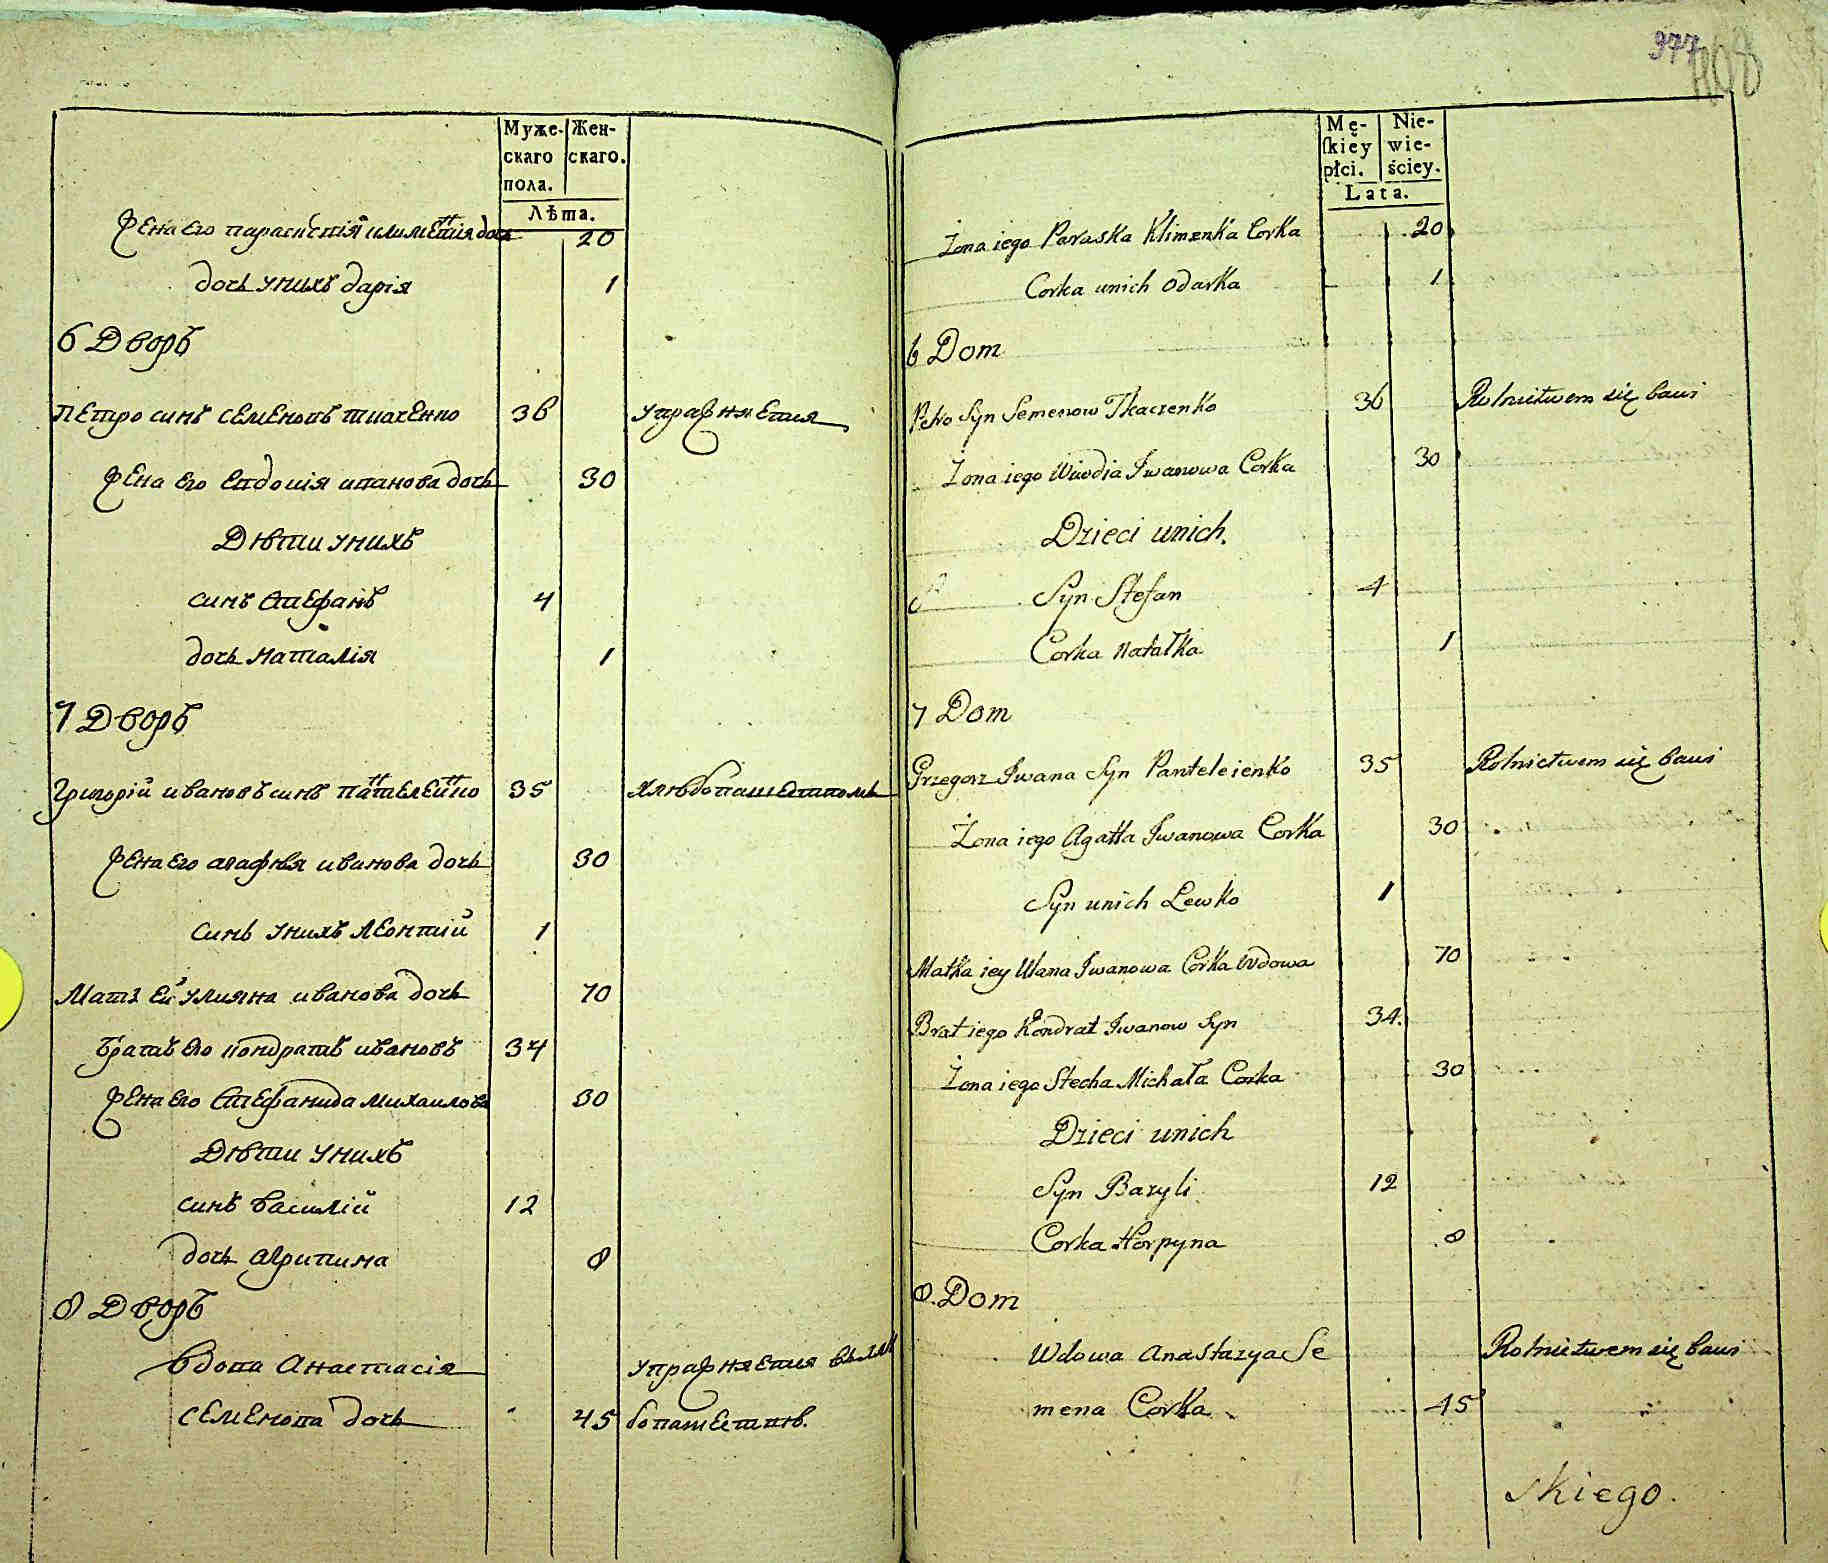 977
408
Муже-
скаго
пола.
Жен-
скаго.
Лѣта.
Жена его параскевія климентія дочь 20
дочь унихъ дарія 1
6 Дворъ
Петро синъ семеновъ ткаченко 36 упражняется
Жена его евдокія иванова дочь 30
Дѣти унихъ
синъ стефанъ 4
дочь наталія 1
7 Дворъ
Григорій ивановъ синъ пантелеенко 35 хлѣбопашествомъ
Жена его агафія иванова дочь 30
синъ унихъ леонтій 1
Мать ей улияна иванова дочь 70
братъ его кондратъ ивановъ 34
Жена его стефанида михаилова 30
Дѣти унихъ
синъ василій 12
дочь агрипина 8
8 Дворъ
вдова Анастасія упражняется
семенова дочь 45 бопашеств.
Mę-
skiey
płci.
Nie-
wie-
ściey.
Lata.
Żona iego Paraska Klimenka Corka 20
Corka unich Odarka 1
6 Dom
Petro Syn Semenow Tkaczenko 36 Rolnictwem się bawi
Żona iego Wiwdia Jwanowa Corka 30
Dzieci unich.
Syn Stefan 4
Corka Natałka 1
7 Dom
Grzegorz Jwana Syn Panteleienko 35 Rolnictwem się bawi
Żona iego Agatta Jwanowa Corka 30
Syn unich Lewko 1
Matka iey Ulana Jwanowa Corka Wdowa 70
Brat iego Kondrat Jwanow Syn 34.
Żona iego Stecha Michała Corka 30
Dzieci unich
Syn Bazyli 12
Corka Horpyna 8
8. Dom
Wdowa Anastazya Se Rolnictwem się bawi
mena Corka 45
skiego.